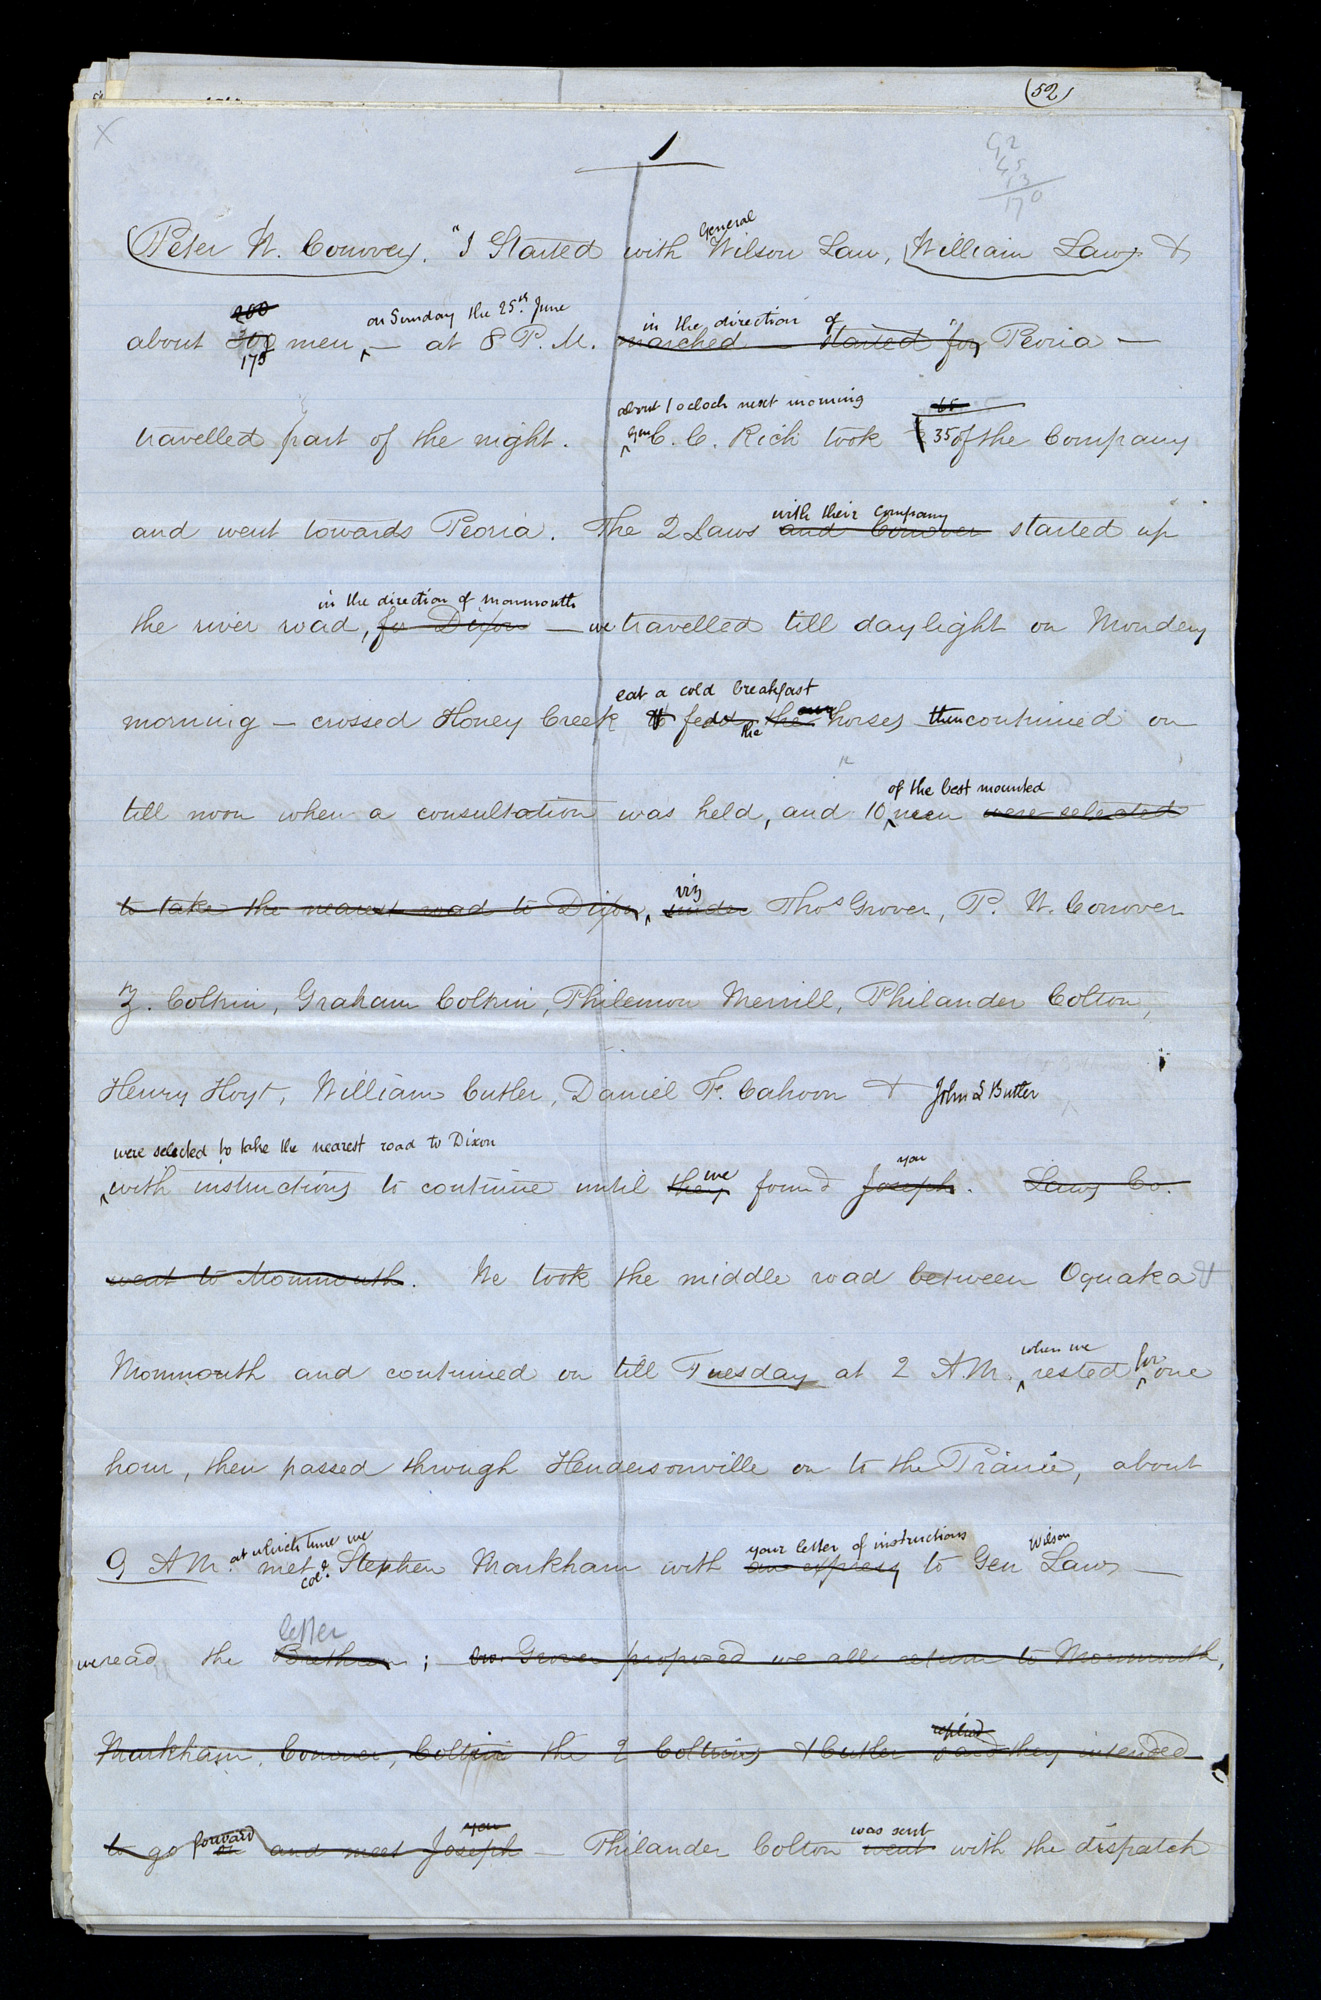 (52)
X
1
92
45
13
170
General
(Peter W. Conover). "I Started with Wilson Law, (William Law) &
200 on Sunday the 25th. June in the direction of
about 300 men, — at 8 P.M. marched — started "for Peoria —
175
about 1 o clock next morning 65
travelled part of the night. Gen C. C. Rich took 35 of the Company
with their company
and went towards Peoria. The 2 Laws and Conover started up
in the direction of monmouth
the river road, for Dixon — we travelled till daylight on Monday
eat a cold breakfast our
morning — crossed Honey Creek & fed the horses then continued on
the
of the best mounted
till noon when a consultation was held, and 10 men were selected
viz
to take the nearest road to Dixon, under Thos Grover, P. W. Conover
Z. Colkin, Graham Colkin, Philemon Merrill, Philander Colton,
Henry Hoyt, William Cutler, Daniel F. Cahoon & John S Butler
were selected to take the nearest road to Dixon
with instructions to continue until they we found Joseph you. Laws Co.
went to Monmouth. We took the middle road between Oquaka &
when we for
Monmouth and continued on till Tuesday at 2 A.M. rested one
hour, then passed through Hendersonville on to the Prairie, about
at which time we your letter of instructions Wilson
9 A.M. met Stephen Markham with an express to Gen Law —
Col.
letter
we read the Brethren; Grover proposed we all return to Monmouth,
replied
Markham, Conover, Colkin the 2 Colkins & Cutler said they intended
forward you was sent
to go on and meet Joseph — Philander Colton went with the dispatch